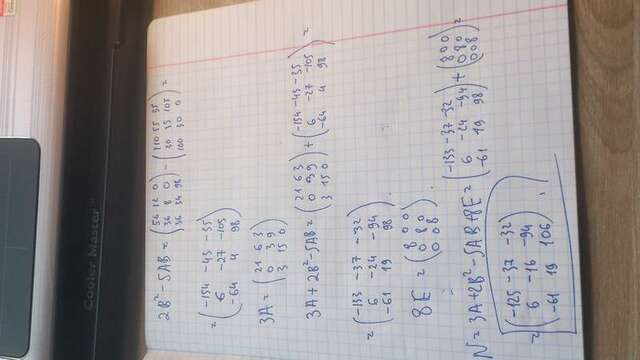 Cooler Master
2B² - 5AB = (56 12 0
36 8 0
36 34 98) - (210 55 35
30 35 105
100 30 0) =
= (-154 -43 -35
6 -27 -105
-64 4 98)
3A = (21 6 3
0 3 9
3 15 0)
3A + 2B² - 5AB = (21 6 3
0 3 9
3 15 0) + (-154 -43 -35
6 -27 -105
-64 4 98) =
= (-133 -37 -32
6 -24 -94
-61 19 98)
8E = (8 0 0
0 8 0
0 0 8)
N = 3A + 2B² - 5AB + 8E = (-133 -37 -32
6 -24 -94
-61 19 98) + (8 0 0
0 8 0
0 0 8) =
= (-125 -37 -32
6 -16 -94
-61 19 106).